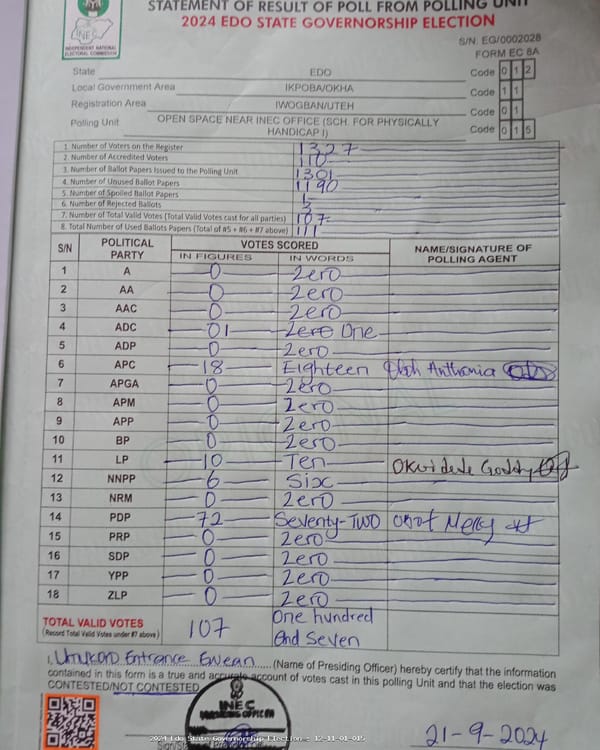 STATEMENT OF RESULT OF POLL FROM POLLING UNIT
2024 EDO STATE GOVERNORSHIP ELECTION
INEC
INDEPENDENT NATIONAL ELECTORAL COMMISSION
S/N. EG/0002028
FORM EC 8A
State EDO Code 0 1 2
Local Government Area IKPOBA/OKHA Code 1 1
Registration Area IWOGBAN/UTEH Code 0 1
Polling Unit OPEN SPACE NEAR INEC OFFICE (SCH. FOR PHYSICALLY HANDICAP I) Code 0 1 5
1. Number of Voters on the Register 1327
2. Number of Accredited Voters 110
3. Number of Ballot Papers Issued to the Polling Unit 1301
4. Number of Unused Ballot Papers 1190
5. Number of Spoiled Ballot Papers 1
6. Number of Rejected Ballots 3
7. Number of Total Valid Votes (Total Valid Votes cast for all parties) 107
8. Total Number of Used Ballots Papers (Total of #5 + #6 + #7 above) 111
S/N POLITICAL PARTY VOTES SCORED NAME/SIGNATURE OF POLLING AGENT
IN FIGURES IN WORDS
1 A 0 Zero
2 AA 0 Zero
3 AAC 0 Zero
4 ADC 01 Zero One
5 ADP 0 Zero
6 APC 18 Eighteen Anthonia
7 APGA 0 Zero
8 APM 0 Zero
9 APP 0 Zero
10 BP 0 Zero
11 LP 10 Ten
12 NNPP 6 Six
13 NRM 0 Zero
14 PDP 72 Seventy-Two
15 PRP 0 Zero
16 SDP 0 Zero
17 YPP 0 Zero
18 ZLP 0 Zero
TOTAL VALID VOTES
(Record Total Valid Votes under #7 above) 107 One hundred and Seven
I, Entrance (Name of Presiding Officer) hereby certify that the information
contained in this form is a true and accurate account of votes cast in this polling Unit and that the election was
CONTESTED/NOT CONTESTED
INEC
PRESIDING OFFICER
2024 Edo State Governorship Election - 12-11-01-015
21-9-2024